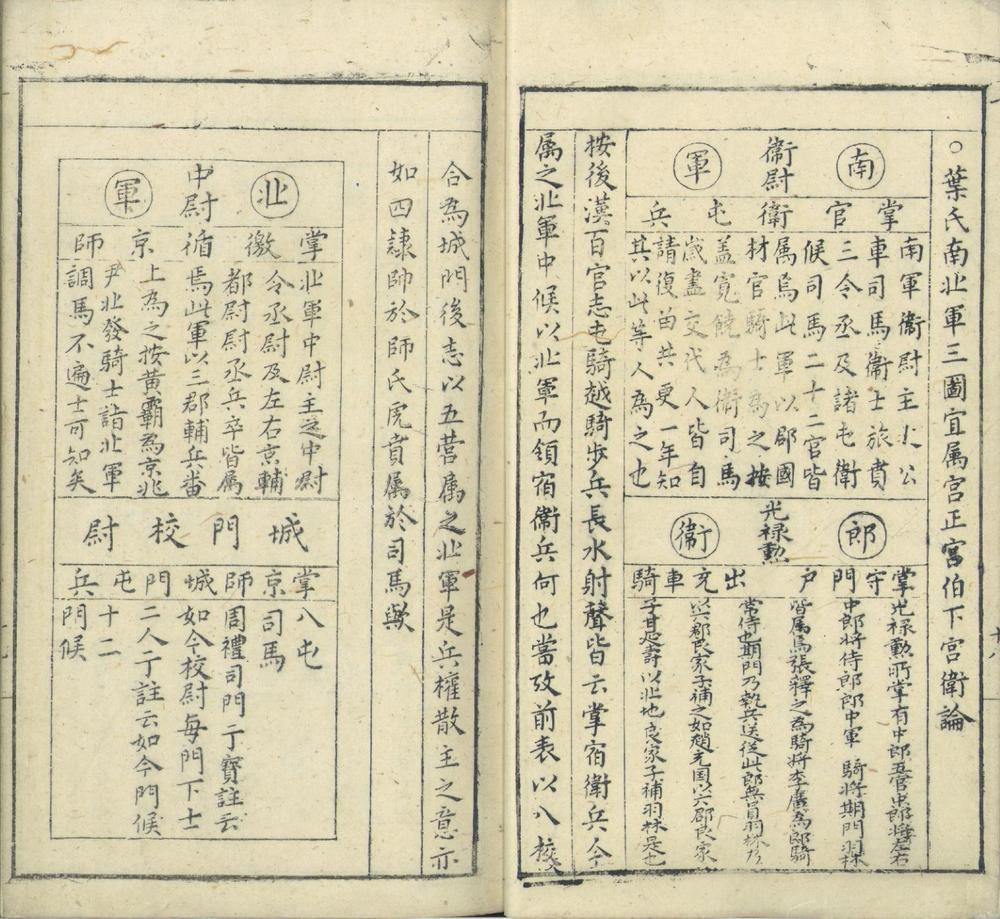 ○葉氏南北軍三圖宜属宫正宫伯下宫衛論
南
衛尉
軍
掌官衛屯兵
南軍衛尉主之公
車司馬衛士旅賁
三令丞及諸屯衛
候司馬二十二官皆
属焉此軍以郡國
材官騎士為之按
盖寬饒為衛司馬
嵗盡交代人皆自
請復留共更一年知
其以此等人為之也
郎
光禄勲
衛
掌守門户出充車騎
光禄勲所掌有中郎五官中郎將左右
中郎將侍郎郎中軍騎將期門羽林
皆属焉張釋之為騎將李廣為郎騎
常侍也期門乃執兵送從此郎無員羽林乃
以六郡良家子補之如趙充国以六郡良家
子甘延壽以北地良家子補羽林是也
按後漢百官志屯騎越騎步兵長水射聲皆云掌宿衛兵今
属之北軍中候以北軍而領宿衛兵何也當攷前表以八校
合為城門後志以五营属之北軍是兵權散主之意亦
如四隷帥於師氏虎賁属於司馬歟
北
中尉
軍
掌徼循京師
北軍中尉主之中尉
令丞尉及左右京輔
都尉尉丞兵卒皆属
焉此軍以三郡輔兵番
上為之按黄霸為京兆
尹北發騎士詣北軍
調馬不遍士可知矣
城門校尉
掌京師城門屯兵
八屯
司馬
十二
門候
周禮司門丁寶註云
如今校尉每門下士
二人丁註云如今門候